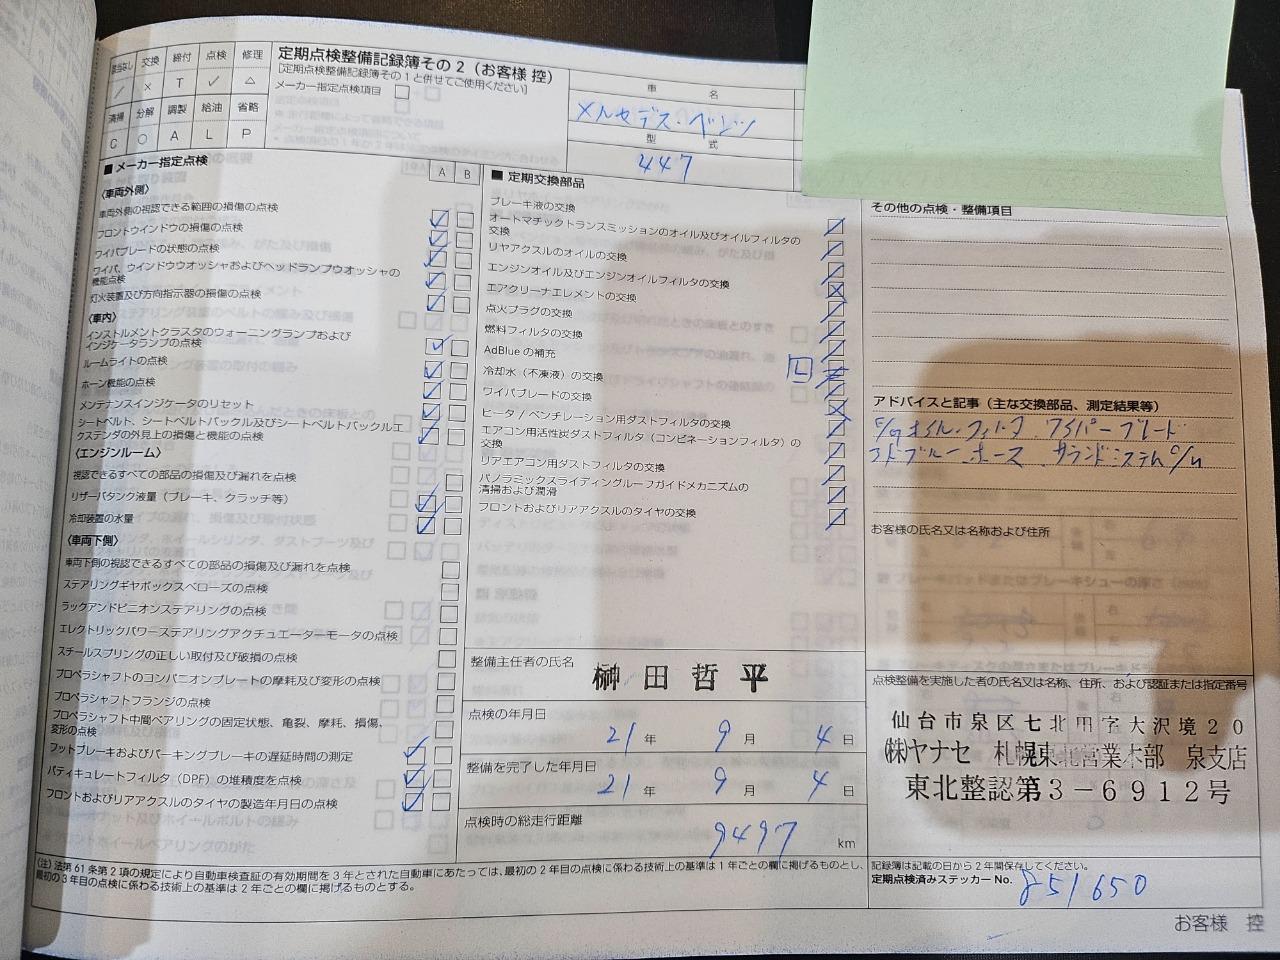 該当なし 交換 締付 点検 修理
／ × T ✓ △
清掃 分解 調製 給油 省略
C ○ A L P
定期点検整備記録簿その2（お客様 控）
[定期点検整備記録簿その1と併せてご使用ください]
メーカー指定点検項目
車 名
メルセデス・ベンツ
型 式
447
■ メーカー指定点検
A B
〈車両外側〉
車両外側の視認できる範囲の損傷の点検
フロントウインドウの損傷の点検
ワイパブレードの状態の点検
ワイパ、ウインドウウオッシャおよびヘッドランプウオッシャの
機能点検
灯火装置及び方向指示器の損傷の点検
〈車内〉
インストルメントクラスタのウォーニングランプおよび
インジケータランプの点検
ルームライトの点検
ホーン機能の点検
メンテナンスインジケータのリセット
シートベルト、シートベルトバックル及びシートベルトバックルエ
クステンダの外見上の損傷と機能の点検
〈エンジンルーム〉
視認できるすべての部品の損傷及び漏れを点検
リザーバタンク液量（ブレーキ、クラッチ等）
冷却装置の水量
〈車両下側〉
車両下側の視認できるすべての部品の損傷及び漏れを点検
ステアリングギヤボックスベローズの点検
ラックアンドピニオンステアリングの点検
エレクトリックパワーステアリングアクチュエーターモータの点検
スチールスプリングの正しい取付及び破損の点検
プロペラシャフトのコンパニオンプレートの摩耗及び変形の点検
プロペラシャフトフランジの点検
プロペラシャフト中間ベアリングの固定状態、亀裂、摩耗、損傷、
変形の点検
フットブレーキおよびパーキングブレーキの遅延時間の測定
パティキュレートフィルタ（DPF）の堆積度を点検
フロントおよびリアアクスルのタイヤの製造年月日の点検
■ 定期交換部品
ブレーキ液の交換
オートマチックトランスミッションのオイル及びオイルフィルタの
交換
リヤアクスルのオイルの交換
エンジンオイル及びエンジンオイルフィルタの交換
エアクリーナエレメントの交換
点火プラグの交換
燃料フィルタの交換
AdBlue の補充
L
冷却水（不凍液）の交換
ワイパブレードの交換
ヒータ / ベンチレーション用ダストフィルタの交換
エアコン用活性炭ダストフィルタ（コンビネーションフィルタ）の
交換
リアエアコン用ダストフィルタの交換
パノラミックスライディングルーフガイドメカニズムの
清掃および潤滑
フロントおよびリアアクスルのタイヤの交換
整備主任者の氏名
榊田哲平
点検の年月日
21 年 9 月 4 日
整備を完了した年月日
21 年 9 月 4 日
点検時の総走行距離
9497 km
その他の点検・整備項目
アドバイスと記事（主な交換部品、測定結果等）
E/gオイル・フィルタ ワイパーブレード
アドブルー ホース サランドシステムO/H
お客様の氏名又は名称および住所
点検整備を実施した者の氏名又は名称、住所、および認証または指定番号
仙台市泉区七北田字大沢境20
㈱ヤナセ 札幌東北営業本部 泉支店
東北整認第3－6912号
（注）法第 61 条第 2 項の規定により自動車検査証の有効期間を 3 年とされた自動車にあたっては、最初の 2 年目の点検に係わる技術上の基準は 1 年ごとの欄に掲げるものとし、
最初の 3 年目の点検に係わる技術上の基準は 2 年ごとの欄に掲げるものとする。
記録簿は記載の日から 2 年間保存してください。
定期点検済みステッカー No. 851650
お客様 控